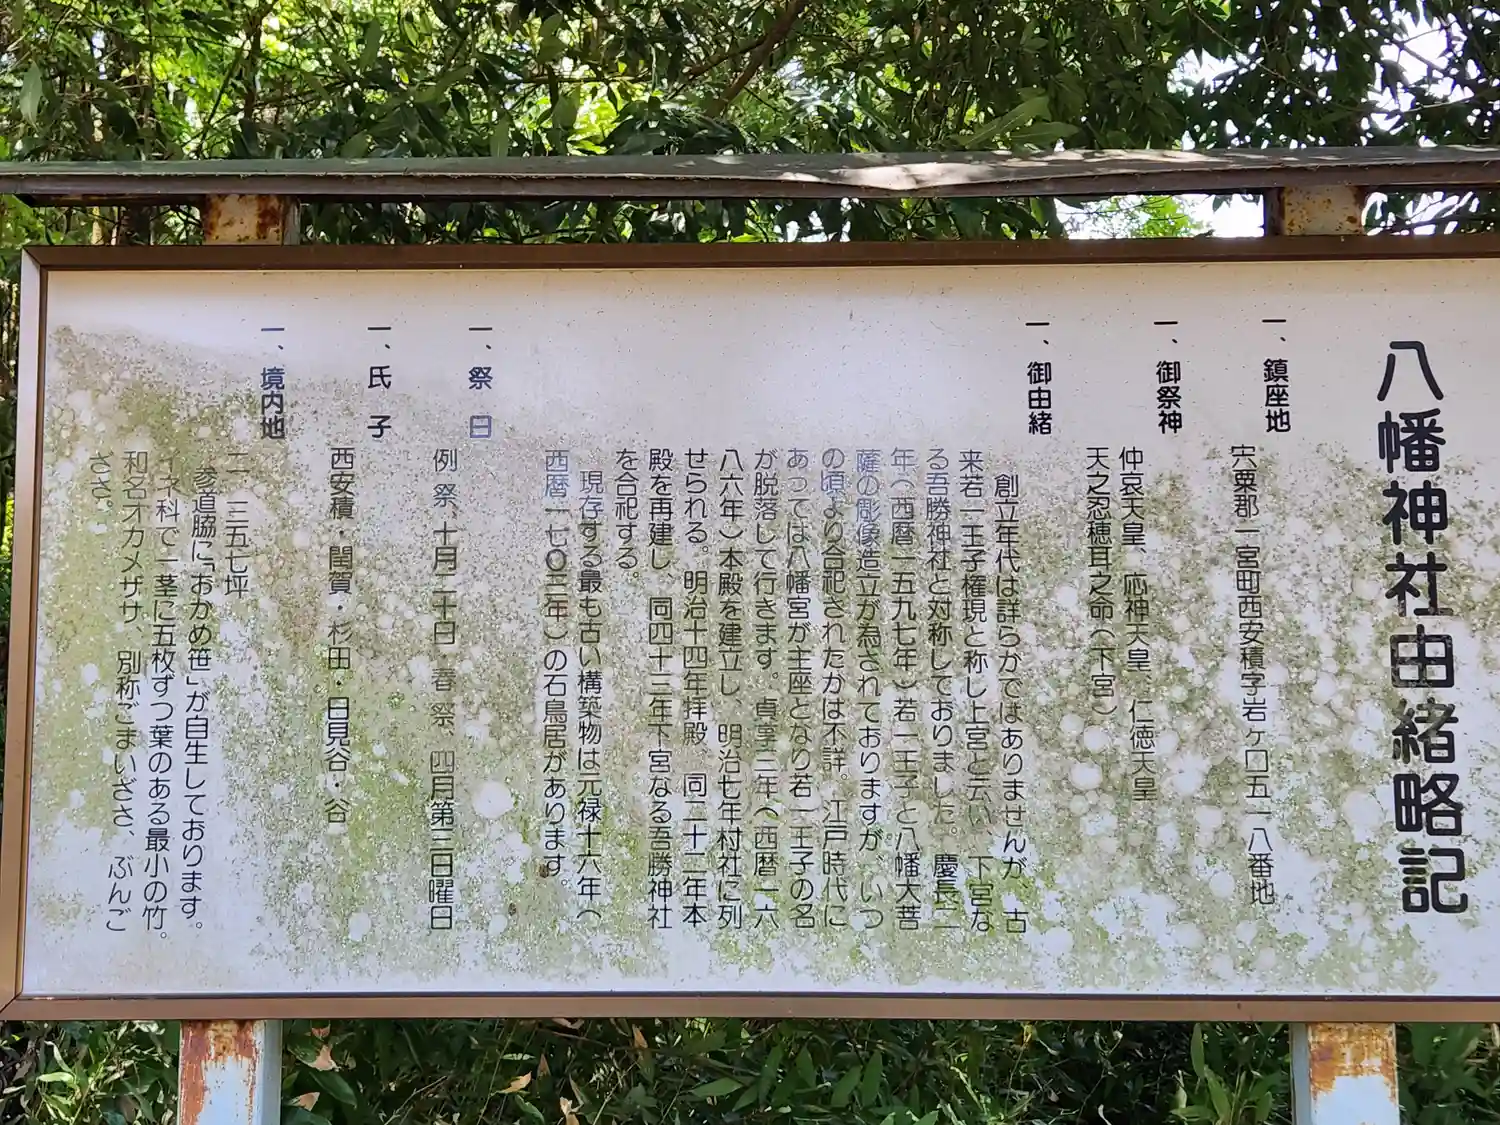 八幡神社由緒略記
一、鎮座地
宍粟郡一宮町西安積字岩ヶ口五一八番地
一、御祭神
仲哀天皇、応神天皇、仁徳天皇
天之忍穂耳之命（下宮）
一、御由緒
創立年代は詳らかではありませんが、古
来若一王子権現と称し上宮と云い、下宮な
る吾勝神社と対称しておりました。慶長二
年（西暦一五九七年）若一王子と八幡大菩
薩の彫像造立が為されておりますが、いつ
の頃より合祀されたかは不詳。江戸時代に
あっては八幡宮が主座となり若一王子の名
が脱落して行きます。貞享三年（西暦一六
八六年）本殿を建立し、明治七年村社に列
せられる。明治十四年拝殿、同二十二年本
殿を再建し、同四十三年下宮なる吾勝神社
を合祀する。
現存する最も古い構築物は元禄十六年（
西暦一七〇三年）の石鳥居があります。
一、祭日
例祭、十月二十日　春祭、四月第三日曜日
一、氏子
西安積・閏賀・杉田・日見谷・谷
一、境内地
二、三五七坪
参道脇に「おかめ笹」が自生しております。
イネ科で一茎に五枚ずつ葉のある最小の竹。
和名オカメザサ、別称ごまいざさ、ぶんご
ささ。